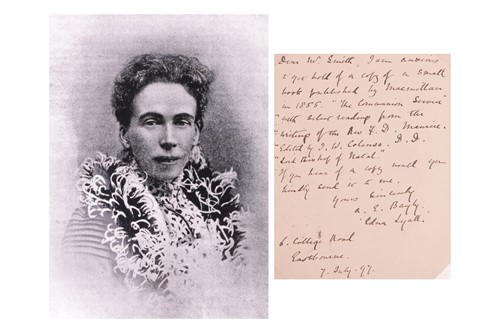 Dear Mr Smith, I am anxious
to get hold of a copy of a small
book published by Macmillan
in 1855. "The Communion Service"
"with select readings from the
"writings of the Rev F. D. Maurice.
"Edited by J. W. Colenso. D. D.
"Lord Bishop of Natal."
If you hear of a copy would you
kindly send it to me.
Yours sincerely
A. E. Bayly.
"Edna Lyall".
6. College Road
Eastbourne.
7. July. 97.